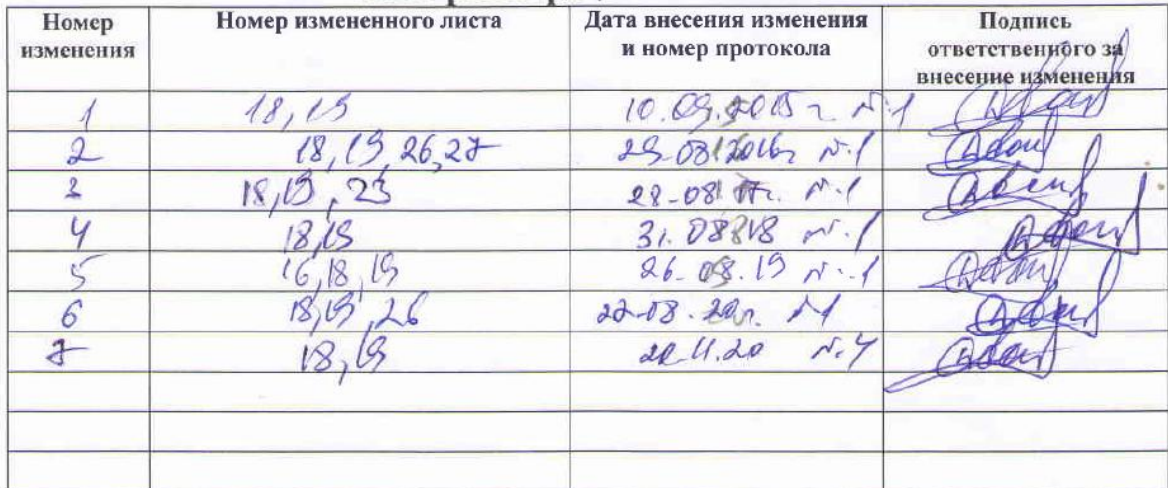 Номер изменения
Номер измененного листа
Дата внесения изменения и номер протокола
Подпись ответственного за внесение изменения
1 18, 19 10.09.2015 г №1
2 18, 19, 26, 27 29.08.2016г №1
3 18, 19, 23 28.08.17г. №1
4 18, 19 31.08.18 №1
5 16, 18, 19 26.08.19 №1
6 18, 19, 26 27.08.20г. №1
7 18, 19 .11.20 №4